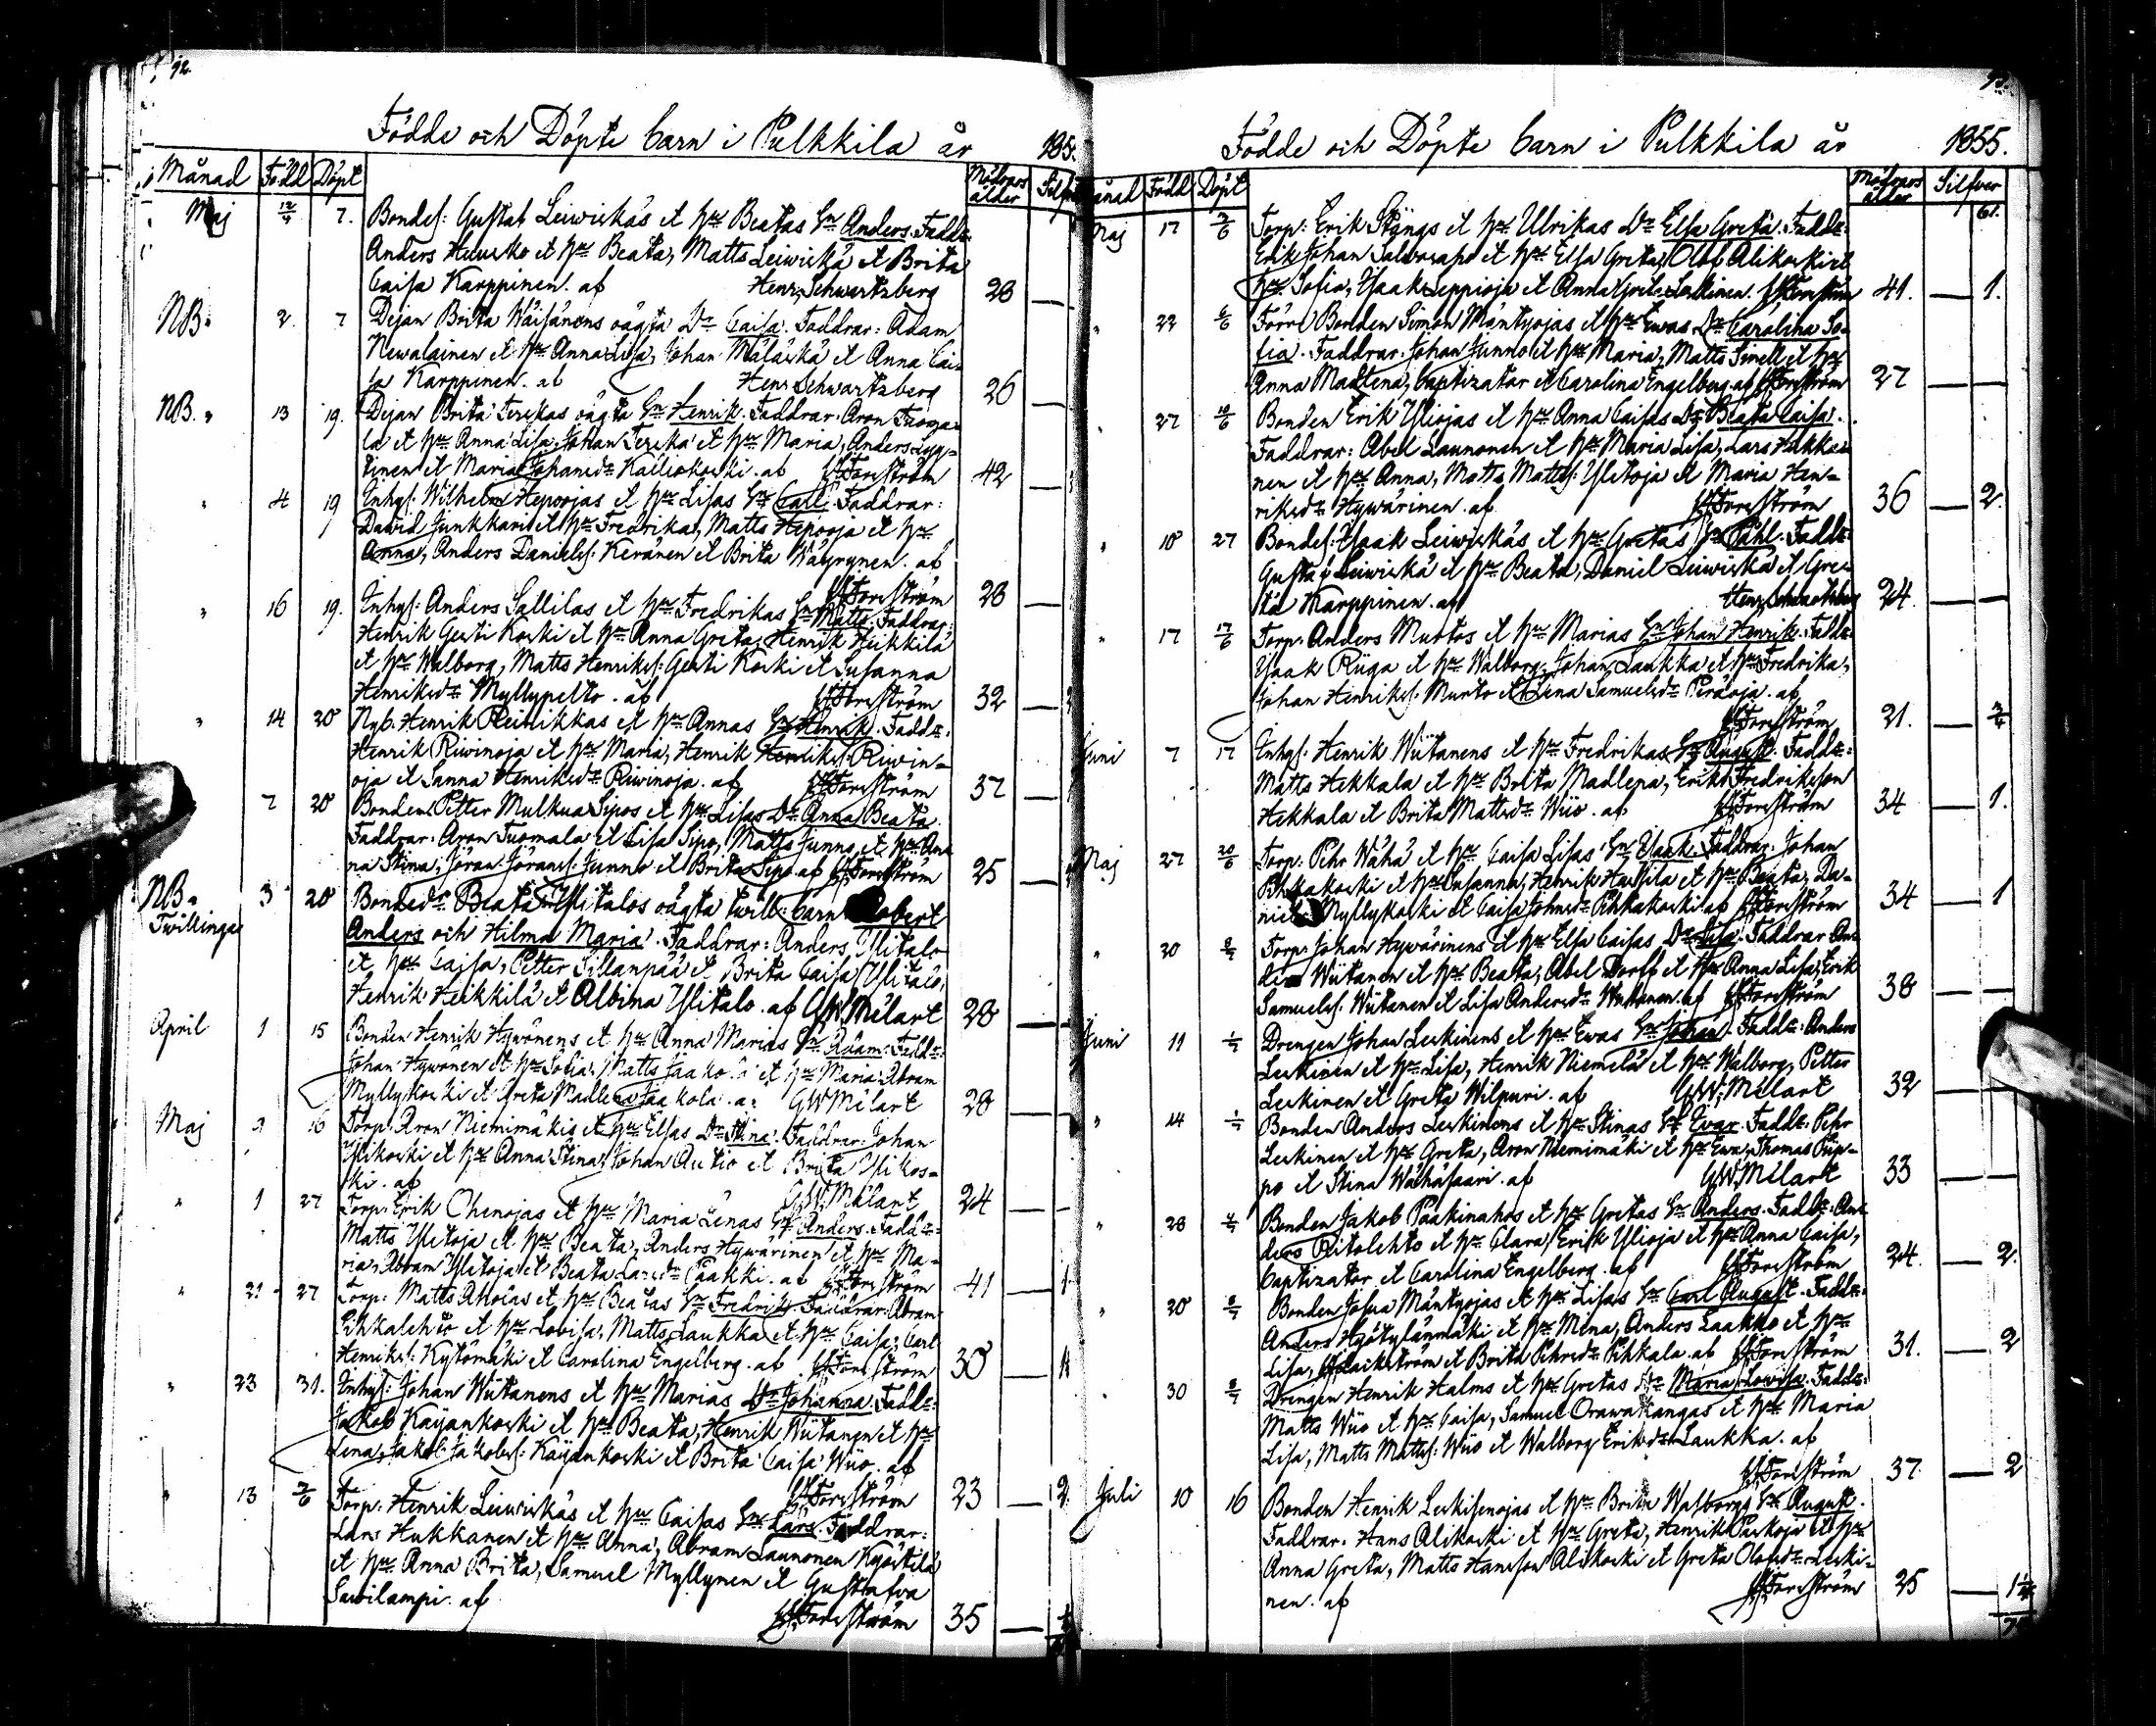 92.
Födde och Döpte barn i Pulkkila år 185
Månad Född Döpt Mödrars ålder Silfver
Maj 12/4 7. Bondes: Gustaf Leiwiskäs et hru Beatas Sn Anders. Faddr:
Anders et hru Beata, Matts Leiwiskä et Brita
Caisa Karppinen. af Henr. Schwartzberg 28 —
NB. 2. 7 Dejan Brita Wäisänens oägta Dr Caisa. Faddrar: Adam
Newalainen et hru Anna Lisa, Johan Mäläskä et Anna Cai-
sa Karppinen. af Henr Schwartzberg 26 —
NB. " 13 19. Dejan Brita Terskas oägta Sn Henrik. Faddrar: Aron Tuoma-
la et hru Anna Lisa, Johan Terska et hru Maria, Anders Lyy-
tinen et Maria Johansdr Kalliokoski. af Forsström 42 —
" 4 19 Inhys: Wilhelm Hepoojas et hru Lisas Sn Carl. Faddrar:
David Junkkari et hru Fredrika, Matts Hepooja et hru
Anna, Anders Daniels: Keränen et Brita Wäyrynen. af
Forsström 28 —
" 16 19. Inhys: Anders Sallilas et hru Fredrikas Sn Matts. Faddrar:
Henrik Gertti Koski et hru Anna Greta, Henrik Heikkilä
et hru Walborg, Matts Henriks: Gertti Koski et Susanna
Henriksdr Myllypelto. af Forsström 32 —
" 14 20 Nyb. Henrik Reinikkas et hru Annas Sn Henrik. Faddr:
Henrik Riivinoja et hru Maria, Henrik Henriks: Riivin-
oja et Sanna Henriksdr Riivinoja. af Forsström 37 —
7 20 Bonden Petter Mulkua Sipos et hru Lisas Dr Anna Beata.
Faddrar: Aron Tuomala et Lisa Sipo, Matts Junno, et hru An-
na Stina, Jöran Jörans: Junno et Brita Sipo af Forsström 25 —
NB. 3 20 Bondedr Beata Ylitalos oägta twill: barn Robert
Twillingar Anders och Hilma Maria. Faddrar: Anders Ylitalo
et hru Caisa, Petter Sillanpää et Brita Caisa Ylitalo,
Henrik Heikkilä et Albina Ylitalo. af GW. Milart 28 —
April 1 15 Bonden Henrik Hywönens et hru Anna Marias Sn Adam. Faddr:
Johan Hywönen et hru Sofia, Matts Jaakola et hru Maria Abram
Myllykoski et Greta Madlena Jaakola. af GW Milart 28 —
Maj 16 Torp: Aron Niemimäkis et hru Elsas Dr Stina. Faddrar: Johan
Ylikoski et hru Anna Stina, Johan Autio et Brita Ylikos-
ki. af GW. Milart 24 —
" 1 27 Torp: Erik Ohenojas et hru Maria Lenas Sn Anders. Faddr:
Matts Ylitoja et hru Beata, Anders Hywärinen et hru Ma-
ria, Abram Ylitoja et Beata Larsdr Paakki. af Forsström 41 — 1
" 21 27 Torp: Matts Aholas et hru Beatas Sn Fredrik. Faddrar: Abram
Pihkalehto et hru Lovisa, Matts Laukka et hru Caisa, Carl
Henriks: Kytömäki et Carolina Engelberg. af Forsström 30 —
" 23 31. Inhys: Johan Wiitanens et hru Marias Dr Johanna. Faddr:
Jakob Käyänkoski et hru Beata, Henrik Wiitanen et hru
Lena, Jakob Jakobs: Käyänkoski et Brita Caisa Wiio. af
Forsström 23 — 2
" 13 2/6 Torp: Henrik Leiwiskäs et hru Caisas Sn Lars. Faddrar:
Lars Hukkanen et hru Anna, Abram Launonen Kyöstilä
et hru Anna Brita, Samuel Myllynen et Gustafva
Sawilampi. af Forsström 35 —
93.
Födde och Döpte barn i Pulkkila år 1855.
Månad Född Döpt Mödrars ålder Silfver
61.
Maj 17 2/6 Torp: Erik Stångs et hru Ulrikas Dr Elsa Greta. Faddr:
Erik Johan Salvosapo et hru Elsa Greta, Olof Alikoski et
hru Sofia, Isaak Leppioja et Anna Greta Leskinen. Forsström 41. — 1.
" 22 6/6 Förre Bonden Simon Mäntyojas et hru Ewas Dr Carolina So-
fia. Faddrar: Johan Junno et hru Maria, Matts Snell et hru
Anna Madlena, baptizator et Carolina Engelberg. af Forsström 27 — —
" 27 10/6 Bonden Erik Yliojas et hru Anna Caisas Dr Beata Caisa.
Faddrar: Abel Launonen et hru Maria Lisa, Lars Hukka-
nen et hru Anna, Matts Matts: Ylitoja et Maria Hen-
riksdr Hywärinen. af Forsström 36 — 2.
" 10 27 Bondes: Isaak Leiwiskäs et hru Gretas Sn Påhl. Faddr:
Gustaf Leiwiskä et hru Beata, Daniel Leiwiskä et Gre-
ta Karppinen. af Henr Schwartzberg 24. — —
" 17 17/6 Torp: Anders Murtos et hru Marias Sn Johan Henrik. Faddr:
Isaak Riiga et hru Walborg, Johan Laukka et hru Fredrika,
Johan Henriks: Murto et Lena Samuelsdr Peräoja. af
Forsström 21. —
Juni 7 17 Inhys: Henrik Wiitanens et hru Fredrikas Sn August. Faddr:
Matts Hekkala et hru Brita Madlena, Erik Fredriksson
Hekkala et Brita Mattsdr Wiio. af Forsström 34 — 1.
Maj 27 20/6 Torp: Pehr Wähä et hru Caisa Lisas Sn Isaak. Faddrar: Johan
Pihkakoski et hru Susanna, Henrik Hassila et hru Beata, Da-
niel Myllykoski et Caisa Johansdr Pihkakoski. af Forsström 34 — 1
" 20 Torp: Johan Hywärinens et hru Elsa Caisas Dr Lisa. Faddrar An-
ders Wiitanen et hru Beata, Abel Dorff et hru Anna Lisa, Erik
Samuels: Wiitanen et Lisa Andersdr Wiitanen. af Forsström 38 — —
Juni 11 1/7 Drengen Johan Leskinens et hru Ewas Sn Johan. Faddr: Anders
Leskinen et hru Lisa, Henrik Niemelä et hru Walborg, Petter
Leskinen et Greta Wilpuri. af GW. Milart 32 —
" 14 1/7 Bonden Anders Leskinens et hru Stinas Sn Evar. Faddr: Pehr
Leskinen et hru Greta, Aron Niemimäki et hru Ewa, Thomas Piip-
po et Stina Wähäsaari. af GW. Milart 33 — —
" 28 4/7 Bonden Jakob Paakinahos et hru Gretas Sn Anders. Faddr: An-
ders Ritolehto et hru Clara, Erik Ylioja et hru Anna Caisa,
baptizator et Carolina Engelberg. af Forsström 24. — 2.
" 20 8/7 Bonden Josua Mäntyojas et hru Lisas Sn Carl August. Faddr:
Anders Hyötylänmäki et hru Mena, Anders Laakko et hru
Lisa, et Brita Pehrsdr Pihkala. af Forsström 31. — 2
" 30 8/7 Drengen Henrik Halms et hru Gretas Dr Maria Lowisa. Faddr:
Matts Wiio et hru Caisa, Samuel Orawakangas et hru Maria
Lisa, Matts Matts: Wiio et Walborg Eriksdr Laukka. af
Forsström 37. — 2
Juli 10 16 Bonden Henrik Leskisenojas et hru Brita Walborgs Sn August.
Faddrar: Hans Alikoski et hru Greta, Henrik et hru
Anna Greta, Matts Hansson Alikoski et Greta Olofsdr Leski-
nen. af Forsström 25 —